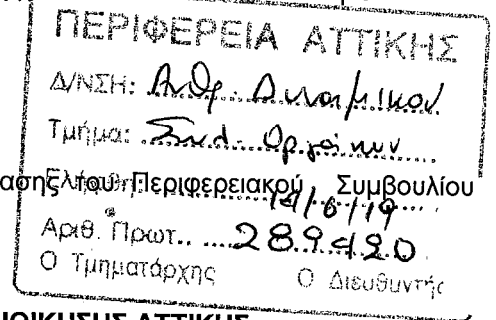 ΠΕΡΙΦΕΡΕΙΑ ΑΤΤΙΚΗΣ
Δ/ΝΣΗ: Ανθρ. Δυναμικού
Τμήμα: Συλ. Οργάνων
Ελήφθη: 14/6/19
ασης του Περιφερειακού Συμβουλίου
Αριθ. Πρωτ.. 289420
Ο Τμηματάρχης Ο Διευθυντής
ΙΟΙΚΗΣΗΣ ΑΤΤΙΚΗΣ